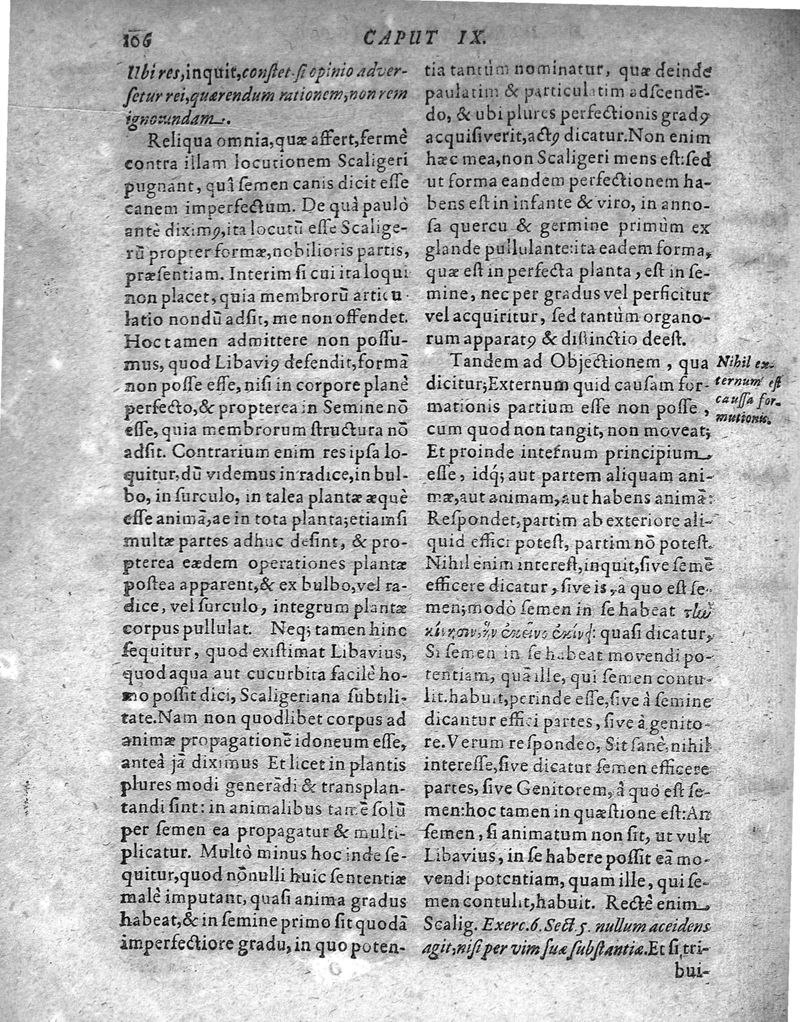 106
CAPUT IX.
Ubi res, inquit, constet si opinio adver-
setur rei, quærendum rationem, non rem
ignorandam.
Reliqua omnia, quæ affert, fermè
contra illam locutionem Scaligeri
pugnant, quâ semen canis dicit esse
canem imperfectum. De quâ paulò
antè diximꝰ, ita locutū esse Scalige-
rū propter formæ, nobilioris partis,
præsentiam. Interim si cui ita loqui
non placet, quia membrorū articu-
latio nondū adsit, me non offendet.
Hoc tamen admittere non possu-
mus, quod Libaviꝰ defendit, formā
non posse esse, nisi in corpore planè
perfecto, & propterea in Semine nō
esse, quia membrorum structura nō
adsit. Contrarium enim res ipsa lo-
quitur, dū videmus in radice, in bul-
bo, in surculo, in talea plantæ æquè
esse animā, ac in tota planta; etiamsi
multæ partes adhuc desint, & pro-
pterea eædem operationes plantæ
postea apparent, & ex bulbo, vel ra-
dice, vel surculo, integrum plantæ
corpus pullulat. Neq; tamen hinc
sequitur, quod existimat Libavius,
quod aqua aut cucurbita facilè ho-
mo possit dici, Scaligeriana subtili-
tate. Nam non quodlibet corpus ad
animæ propagationē idoneum esse,
anteà jā diximus Et licet in plantis
plures modi generādi & transplan-
tandi sint: in animalibus tamē solū
per semen ea propagatur & multi-
plicatur. Multò minus hoc inde se-
quitur, quod nōnulli huic sententiæ
malè imputant, quasi anima gradus
habeat, & in semine primo sit quodā
imperfectiore gradu, in quo poten-
tia tantùm nominatur, quæ deinde
paulatim & particulatim adscendē-
do, & ubi plures perfectionis gradꝰ
acquisiverit, actꝰ dicatur. Non enim
hæc mea, non Scaligeri mens est: sed
ut forma eandem perfectionem ha-
bens est in infante & viro, in anno-
sa quercu & germine primùm ex
glande pullulante: ita eadem forma,
quæ est in perfecta planta, est in se-
mine, nec per gradus vel perficitur
vel acquiritur, sed tantùm organo-
rum apparatꝰ & distinctio deest.
Tandem ad Objectionem, qua
dicitur; Externum quid causam for-
mationis partium esse non posse,
cum quod non tangit, non moveat;
Et proinde internum principium
esse, idq; aut partem aliquam ani-
mæ, aut animam, aut habens animā:
Respondet, partim ab exteriore ali-
quid effici potest, partim nō potest.
Nihil enim interest, inquit, sive semē
efficere dicatur, sive is, a quo est se-
men; modò semen in se habeat τὼ
κίνησιν, ἣν ἐκεῖνο ἐκίνει: quasi dicatur,
Si semen in se habeat movendi po-
tentiam, quā ille, qui semen contu-
lit. habuit, perinde esse, sive à semine
dicantur effici partes, sive à genito-
re. Verum respondeo, Sit sanè, nihil
interesse, sive dicatur semen efficere
partes, sive Genitorem, à quo est se-
men: hoc tamen in quæstione est: An
semen, si animatum non sit, ut vult
Libavius, in se habere possit eā mo-
vendi potentiam, quam ille, qui se-
men contulit, habuit. Rectè enim
Scalig. Exerc. 6. Sect. 5. nullum accidens
agit, nisi per vim suæ substantiæ. Et si tri-
bui-
Nihil ex-
ternum est
caussa for-
mationis.